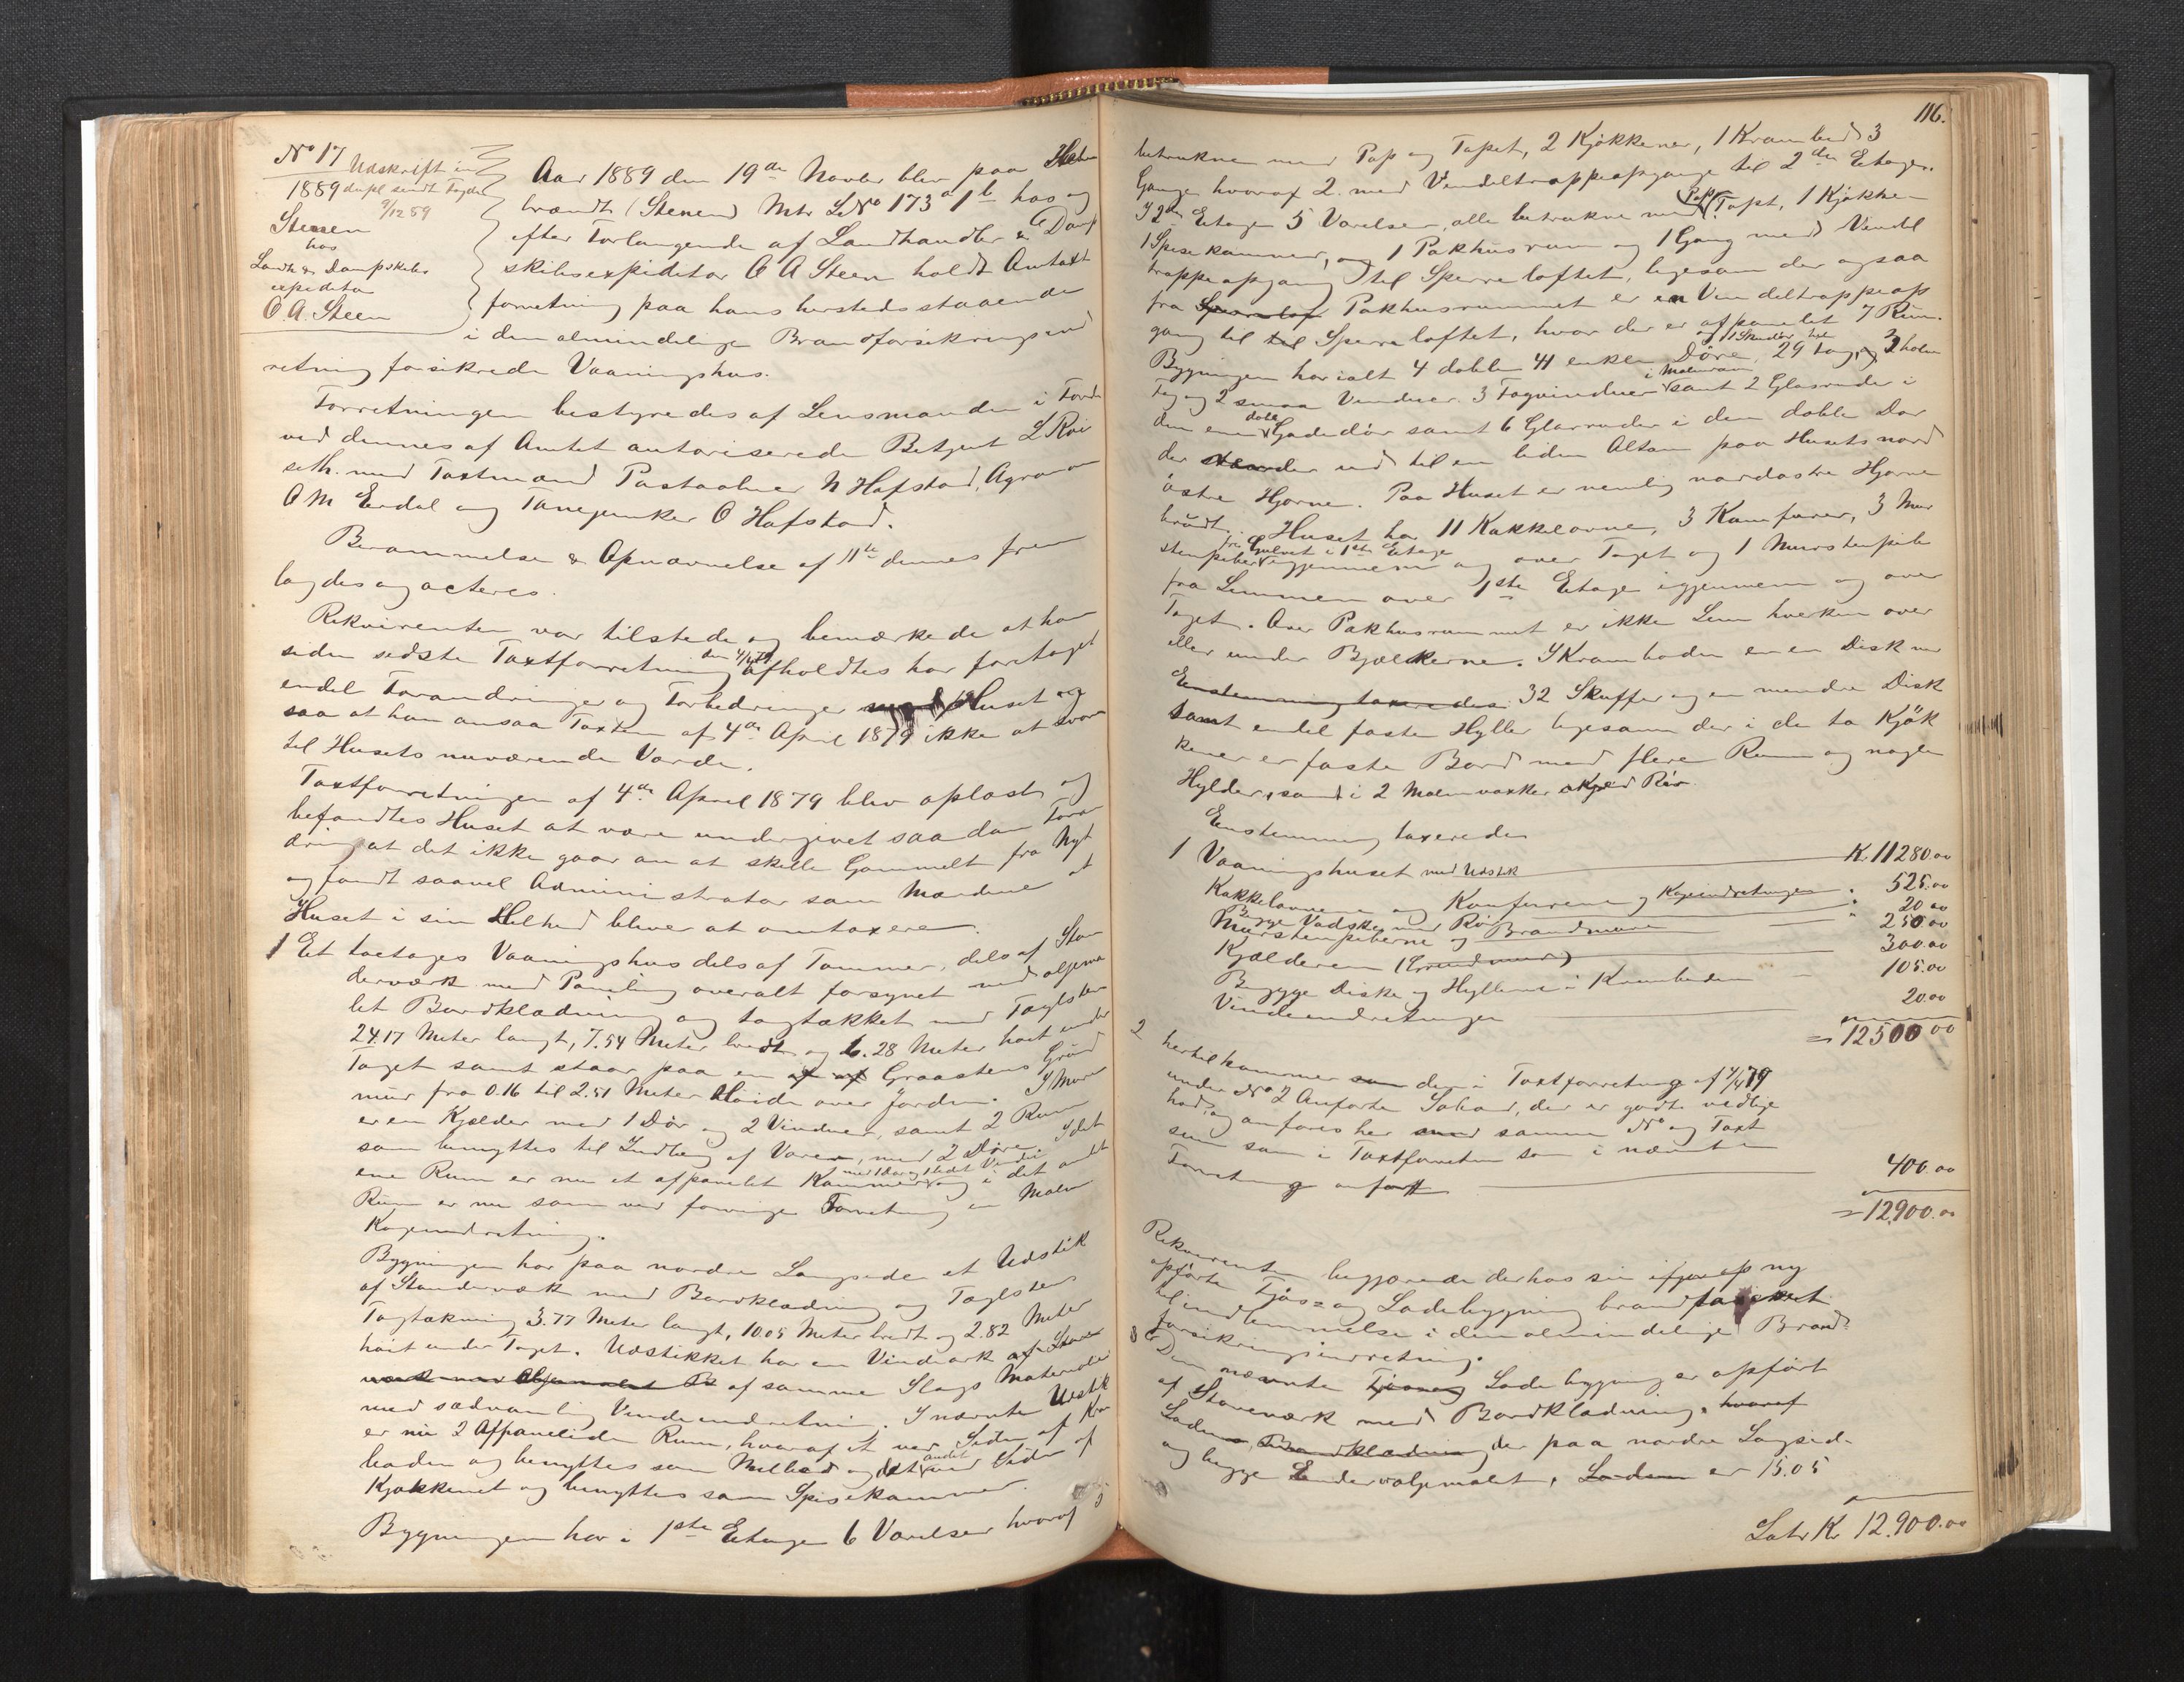 No 17 Udskrift in
1889 dupl sendt Fogden
9/12 89
Steen
hos
Landh & Dampskibs
expeditør
O. A. Steen
Aar 1889 den 19de Novbr blev paa
brændt (Stenen) Mtr LNo 173 a 1 b hos og
efter Forlangende af Landhandler & Damp
skibsexpeditør O A Steen holdt Omtaxt
forretning paa hans hersteds staaende
i den almindelige Brandforsikringsind
retning forsikrede Vaaningshus.
Forretningen bestyredes af Lensmanden i Førde
ved dennes af Amtet autoriserede Betjent L Roi
seth. med Taxtmænd Postaabner N Hafstad, Agronom
O M Erdal og Fanejunker O Hafstad.
Berammelse & Opnævnelse af 11te dennes frem
lagdes og acteres.
Rekvirenten var tilstede og bemærkede at han
siden sidste Taxtforretning den 4/4 79 afholdtes har foretaget
endel Forandringer og Forbedringer Huset og
saa at han ansaa Taxten af 4de April 1879 ikke at svare
til Husets nuværende Værdi.
Taxtforretningen af 4de April 1879 blev oplæst og
befandtes Huset at være undergivet saadan Foran
dring at det ikke gaar an at skille Gammelt fra Nyt
og fandt saavel Administrator som Mændene at
Huset i sin Helhed bliver at omtaxere.
1 Et toetages Vaaningshus dels af Tømmer, dels af Stan
derværk med Paneling overalt forsynet med oljema
let Bordklædning og tagtækket med Taglsten
24.17 Meter langt, 7.54 Meter bredt og 6.28 Meter høit under
Taget samt staar paa en af af Graastens Grund
mur fra 0.16 til 2.51 Meter Høide over Jorden. I Muren
er en Kjælder med 1 Dør og 2 Vinduer, samt 2 Rum
som benyttes til Indlæg af Varer, med 2 Døre. I det
ene Rum er nu et afpanelet Kammer med 1 Dør og 1 lidet Vindu og i det andet
Rum er nu som ved forrige Forretning en Malm
Kogeindretning.
Bygningen har paa nordre Langside et Udstik
af Standerværk med Bordklædning og Taglstens
Tagtækning 3.77 Meter langt, 10.05 Meter bredt og 2.82 Meter
høit under Taget. Udstikket har en Vindark af Stander
værk med Oljemalet B af samme Slags Materialer
med sædvanlig Vindeindretning. I nævnte Udstik
er nu 2 Afpanelede Rum, hvoraf et ved Siden af Kram
boden og benyttes som Melbod og det andet ved Siden af
Kjøkkenet og benyttes som Spisekammer.
Bygningen har i 1ste Etage 6 Værelser hvoraf 5
116.
betrukne med Pap og Tapet, 2 Kjøkkener, 1 Krambod 3
Gange hvoraf 2 med Vendeltrappeopgange til 2den Etage.
I 2den Etage 5 Værelser, alle betrukne med Pap & Tapt, 1 Kjøkken
1 Spisekammer, og 1 Pakhusrum og 1 Gang med Vendel
trappeopgang til Sperreloftet, ligesom der ogsaa
fra Sperrelof Pakhusrummet er en Vendeltrappeop
gang til til Sperreloftet, hvor der er afpanelet 7 Rum.
Bygningen har ialt 4 doble 41 enkle Døre og 1 Skudør, 29 fag, og 2 halve
Fag og 2 smaa Vinduer. 3 Tagvinduer i Malmram samt 2 Glasruder i
den ene doble Gadedør samt 6 Glasruder i den doble Dør
der staar der ud til en liden Altan paa Husets nord
østre Hjørne. Paa Huset er nemlig nordøstre Hjørne
brudt. Huset har 11 Kakkelovne, 3 Komfurer, 3 Mur
stenspiber fra Gulvet i 1ste Etage igjennem og over Taget og 1 Murstenspibe
fra Lemmen over 1ste Etage igjennem og over
Taget. Over Pakhusrummet er ikke Lem hverken over
eller under Bjælkerne. I Kramboden er en Disk med
Enstemmig taxeredes 32 Skuffer og en mindre Disk
samt endel faste Hyller ligesom der i de to Kjøk
kener er faste Bord med flere Rum og nogle
Hylder, samt i 2 Malmvasker Rør.
Enstemmig taxeredes
1 Vaaningshuset med Udstik K. 11280.00
Kakkelovnene og Komfurene og Kogeindretningen " 525.00
Begge Vadske med Rør " 20 00
Murstenspiberne og Brandmure " 250.00
Kjælderen (Grundmur) 300.00
Begge Diske og Hyllerne i Kramboden 105.00
Vindeindretningen 20.00
= 12500 00
2 hertil kommer som den i Taxtforretning af 4/4 79
under No 2 Anførte Søbod, der er godt vedlige
hold, og anføres her med samme No og Taxt
sum som i Taxtforretn som i nævnte
Forretning anført 400.00
= 12,900.00
Rekvirenten begjærede derhos sin ifjor op ny
opførte Fjøs= og Ladebygning brandtaxeret
til indlemmelse i den almindelige Brand
forsikringsindretning.
3 Den nævnte Fjøs og Ladebygning er opført
af Staveværk med Bordklædning, hvoraf
Laden, Bordklædning der paa nordre Langside
og begge Ender oljemalt, Laden er 15.05
Latr Kr 12.900.00